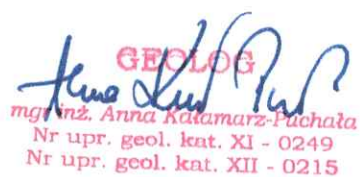 GEOLOG
mgr inż. Anna Kałamarz-Puchała
Nr upr. geol. kat. XI - 0249
Nr upr. geol. kat. XII - 0215